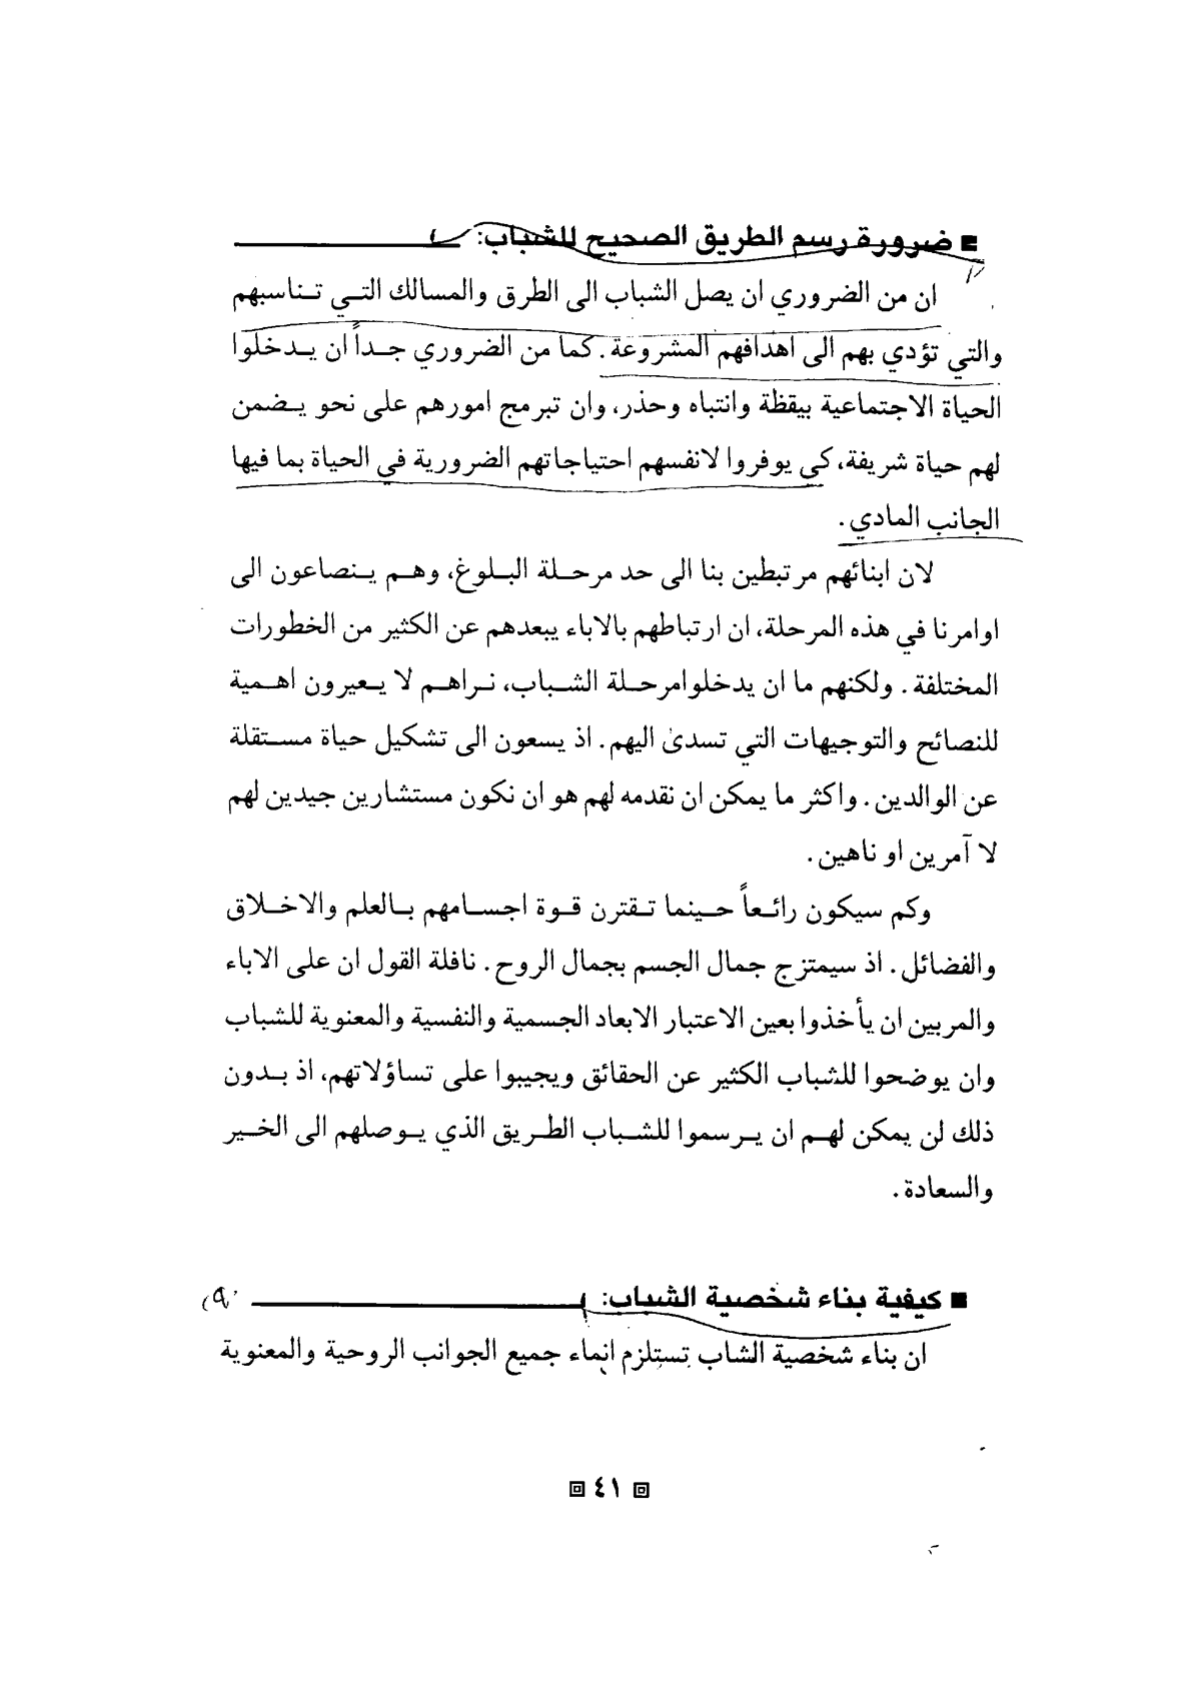 ■ ضرورة رسم الطريق الصحيح للشباب:
ان من الضروري ان يصل الشباب الى الطرق والمسالك التي تناسبهم
والتي تؤدي بهم الى اهدافهم المشروعة. كما من الضروري جداً ان يدخلوا
الحياة الاجتماعية بيقظة وانتباه وحذر، وان تبرمج امورهم على نحو يضمن
لهم حياة شريفة، كي يوفروا لانفسهم احتياجاتهم الضرورية في الحياة بما فيها
الجانب المادي.
لان ابنائهم مرتبطين بنا الى حد مرحلة البلوغ، وهم ينصاعون الى
اوامرنا في هذه المرحلة، ان ارتباطهم بالاباء يبعدهم عن الكثير من الخطورات
المختلفة. ولكنهم ما ان يدخلوامرحلة الشباب، نراهم لا يعيرون اهمية
للنصائح والتوجيهات التي تسدىٰ اليهم. اذ يسعون الى تشكيل حياة مستقلة
عن الوالدين. واكثر ما يمكن ان نقدمه لهم هو ان نكون مستشارين جيدين لهم
لا آمرين او ناهين.
وكم سيكون رائعاً حينما تقترن قوة اجسامهم بالعلم والاخلاق
والفضائل. اذ سيمتزج جمال الجسم بجمال الروح. نافلة القول ان على الاباء
والمربين ان يأخذوا بعين الاعتبار الابعاد الجسمية والنفسية والمعنوية للشباب
وان يوضحوا للشباب الكثير عن الحقائق ويجيبوا على تساؤلاتهم، اذ بدون
ذلك لن يمكن لهم ان يرسموا للشباب الطريق الذي يوصلهم الى الخير
والسعادة.
■ كيفية بناء شخصية الشباب:
ان بناء شخصية الشاب تستلزم انماء جميع الجوانب الروحية والمعنوية
٤١